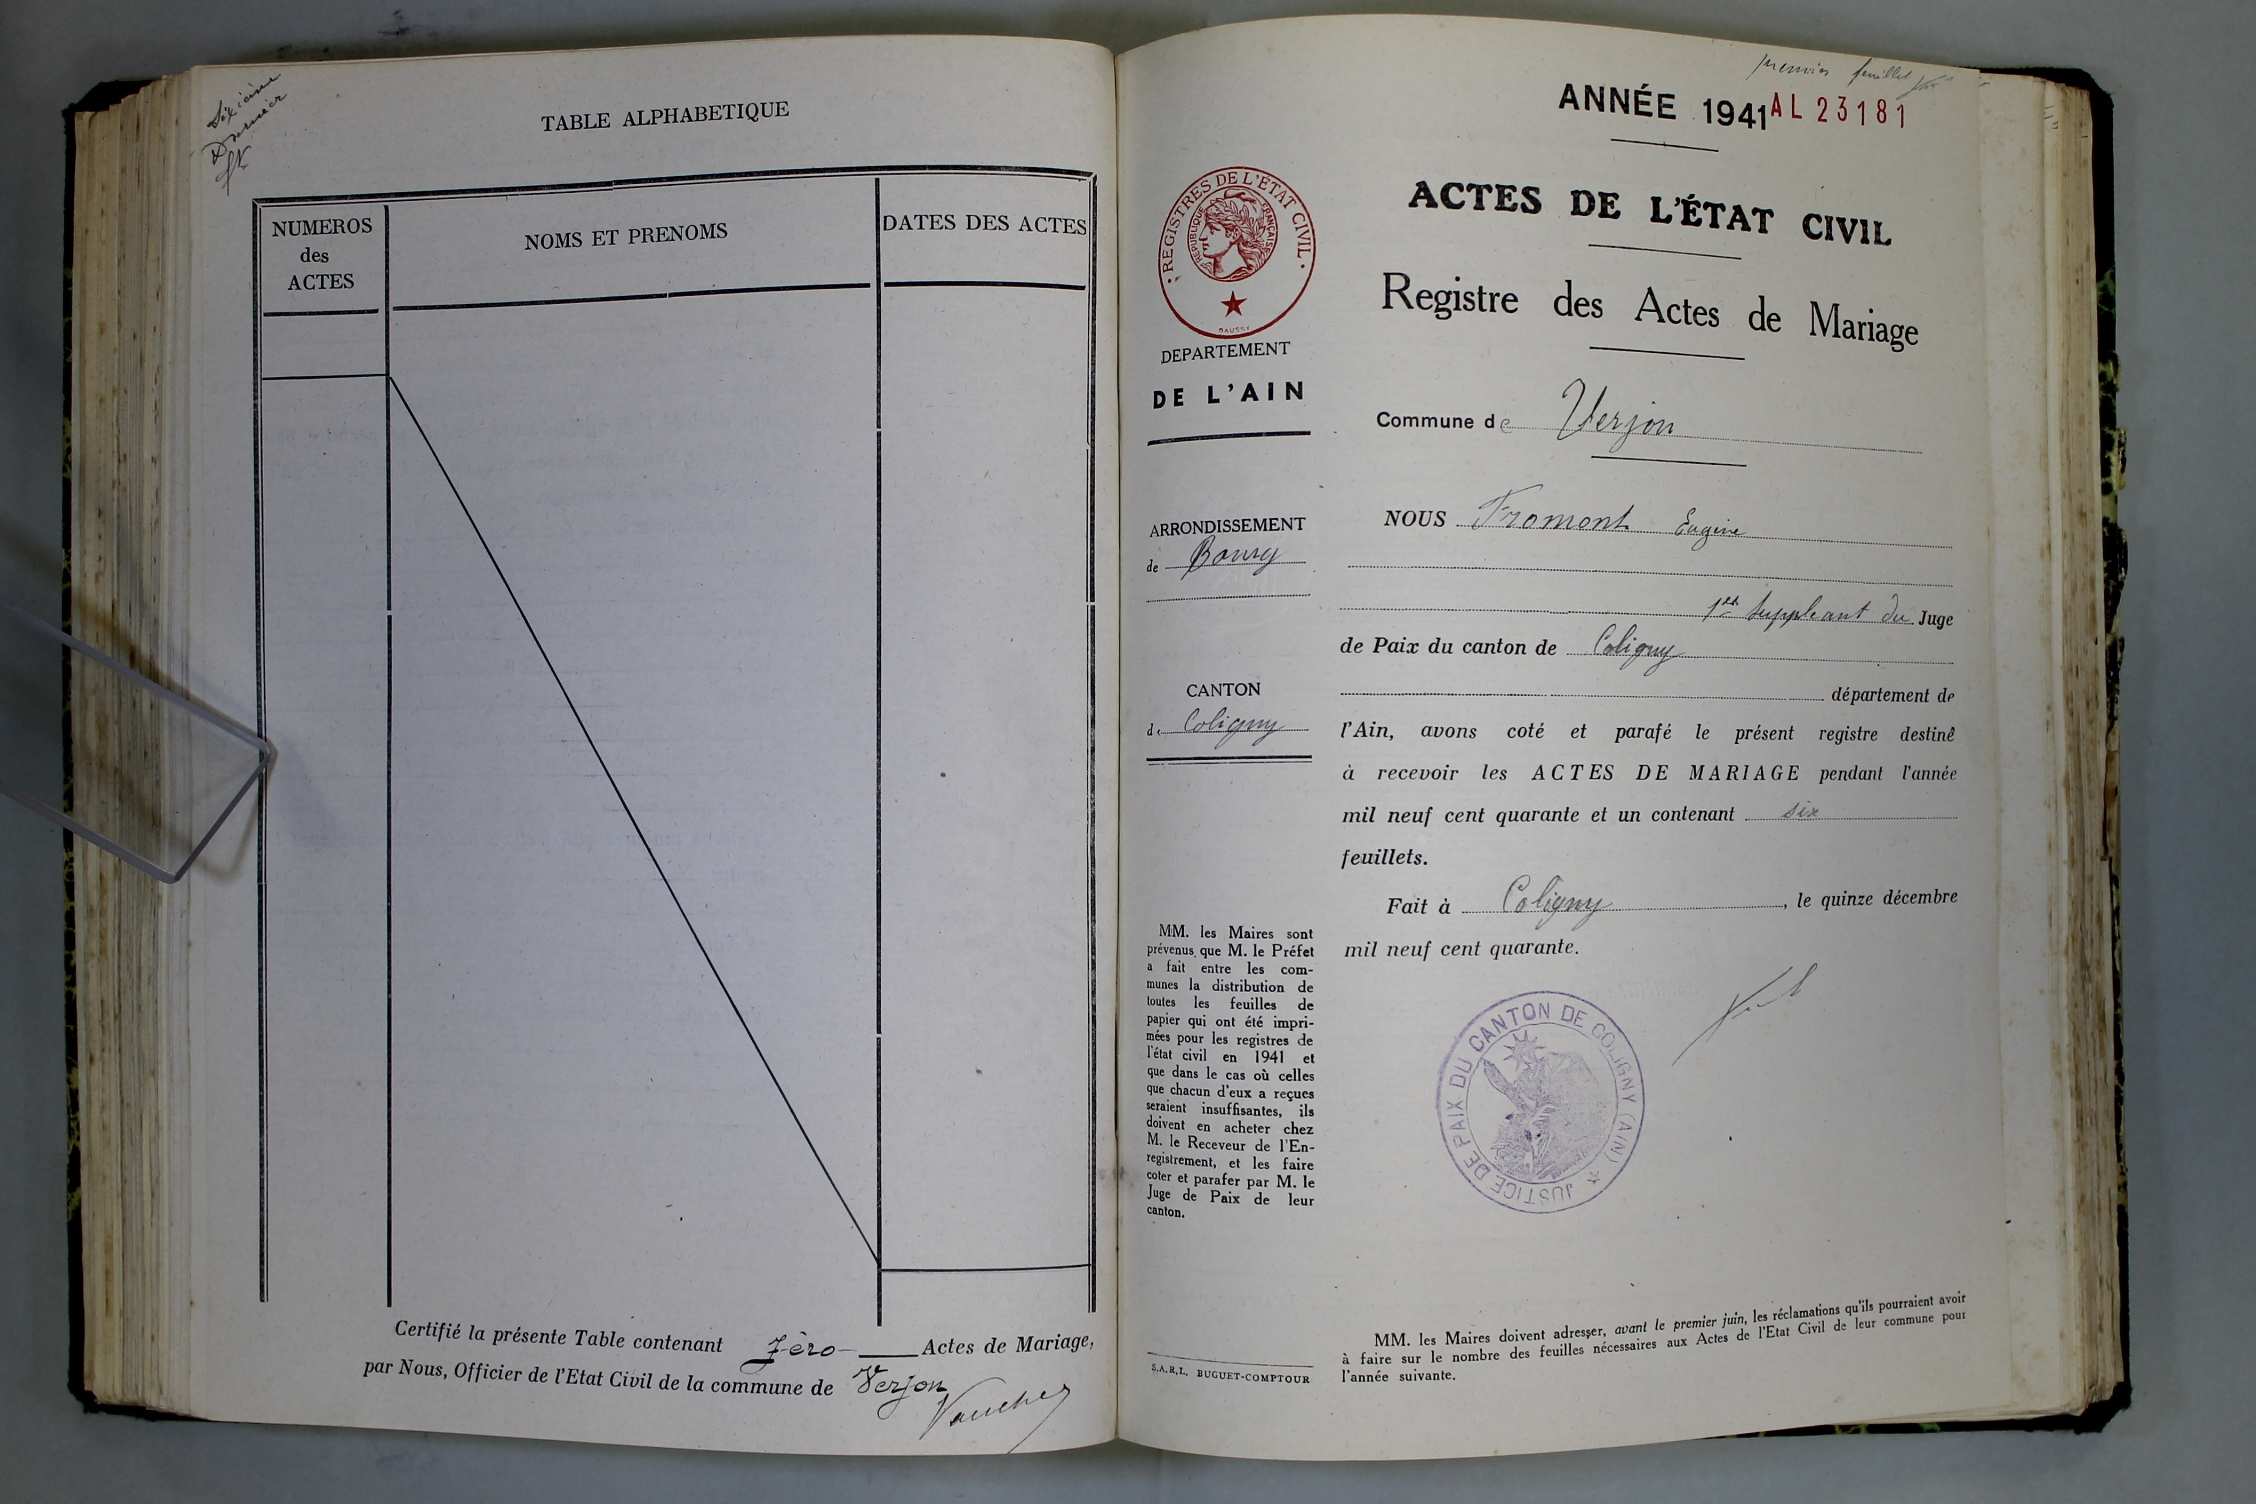 Sixième
Dernier
TABLE ALPHABETIQUE
NUMEROS
des
ACTES
NOMS ET PRENOMS
DATES DES ACTES
Certifié la présente Table contenant Zéro Actes de Mariage,
par Nous, Officier de l'Etat Civil de la commune de Verjon
premier feuillet
ANNÉE 1941
AL 23181
ACTES DE L'ÉTAT CIVIL
Registre des Actes de Mariage
Commune de Verjon
REGISTRES DE L'ÉTAT CIVIL
REPUBLIQUE FRANÇAISE
DAUSSY
DEPARTEMENT
DE L'AIN
ARRONDISSEMENT
de Bourg
CANTON
de Coligny
MM. les Maires sont
prévenus que M. le Préfet
a fait entre les com-
munes la distribution de
toutes les feuilles de
papier qui ont été impri-
mées pour les registres de
l'état civil en 1941 et
que dans le cas où celles
que chacun d'eux a reçues
seraient insuffisantes, ils
doivent en acheter chez
M. le Receveur de l'En-
registrement, et les faire
coter et parafer par M. le
Juge de Paix de leur
canton.
S.A.R.L. BUGUET-COMPTOUR
NOUS Fromont Eugène
1er Suppléant du Juge
de Paix du canton de Coligny
département de
l'Ain, avons coté et parafé le présent registre destiné
à recevoir les ACTES DE MARIAGE pendant l'année
mil neuf cent quarante et un contenant six
feuillets.
Fait à Coligny, le quinze décembre
mil neuf cent quarante.
JUSTICE DE PAIX DU CANTON DE COLIGNY (AIN)
MM. les Maires doivent adresser, avant le premier juin, les réclamations qu'ils pourraient avoir
à faire sur le nombre des feuilles nécessaires aux Actes de l'Etat Civil de leur commune pour
l'année suivante.